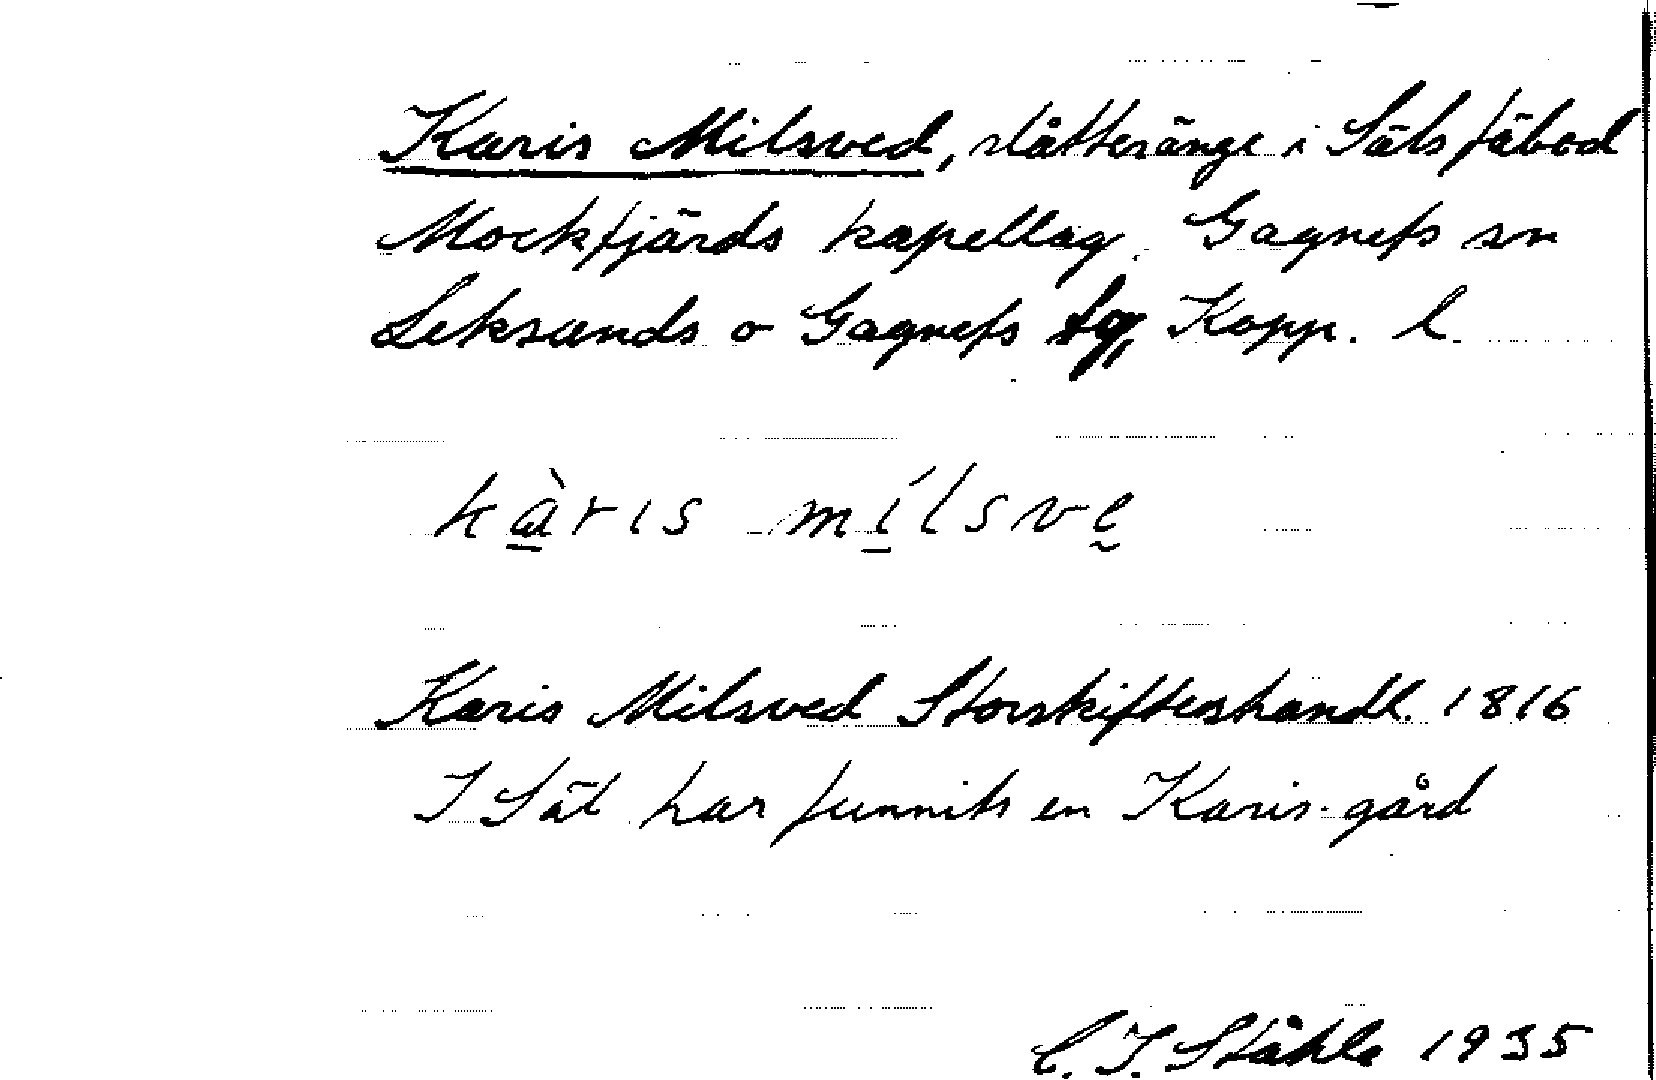 Karis Milsved, slåtteränge i Säts fäbod
Mockfjärds kapellag, Gagnefs sn
Leksands o Gagnefs tg, Kopp. l.
kàris mílsve
Karis Milsved Storskifteshandl. 1816
I Sät har funnits en Karis-gård
C. I. Ståhle 1935